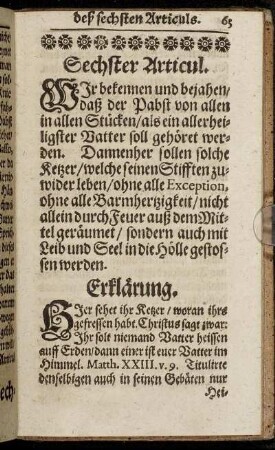 deß sechsten Articuls. 63
Sechster Articul.
WIr bekennen und bejahen/
daß der Pabst von allen
in allen Stücken/als ein allerhei-
ligster Vatter soll gehöret wer-
den. Dannenher sollen solche
Ketzer/welche seinen Stifften zu-
wider leben/ohne alle Exception,
ohne alle Barmhertzigkeit/nicht
allein durch Feuer auß dem Mit-
tel geräumet/sondern auch mit
Leib und Seel in die Hölle gestos-
sen werden.
Erklärung.
HIer sehet ihr Ketzer/woran ihrs
gefressen habt. Christus sagt zwar:
Ihr solt niemand Vatter heissen
auff Erden/dann einer ist euer Vatter im
Himmel. Matth. XXIII. v. 9. Titulirte
denselbigen auch in seinen Gebäten nur
Hei-